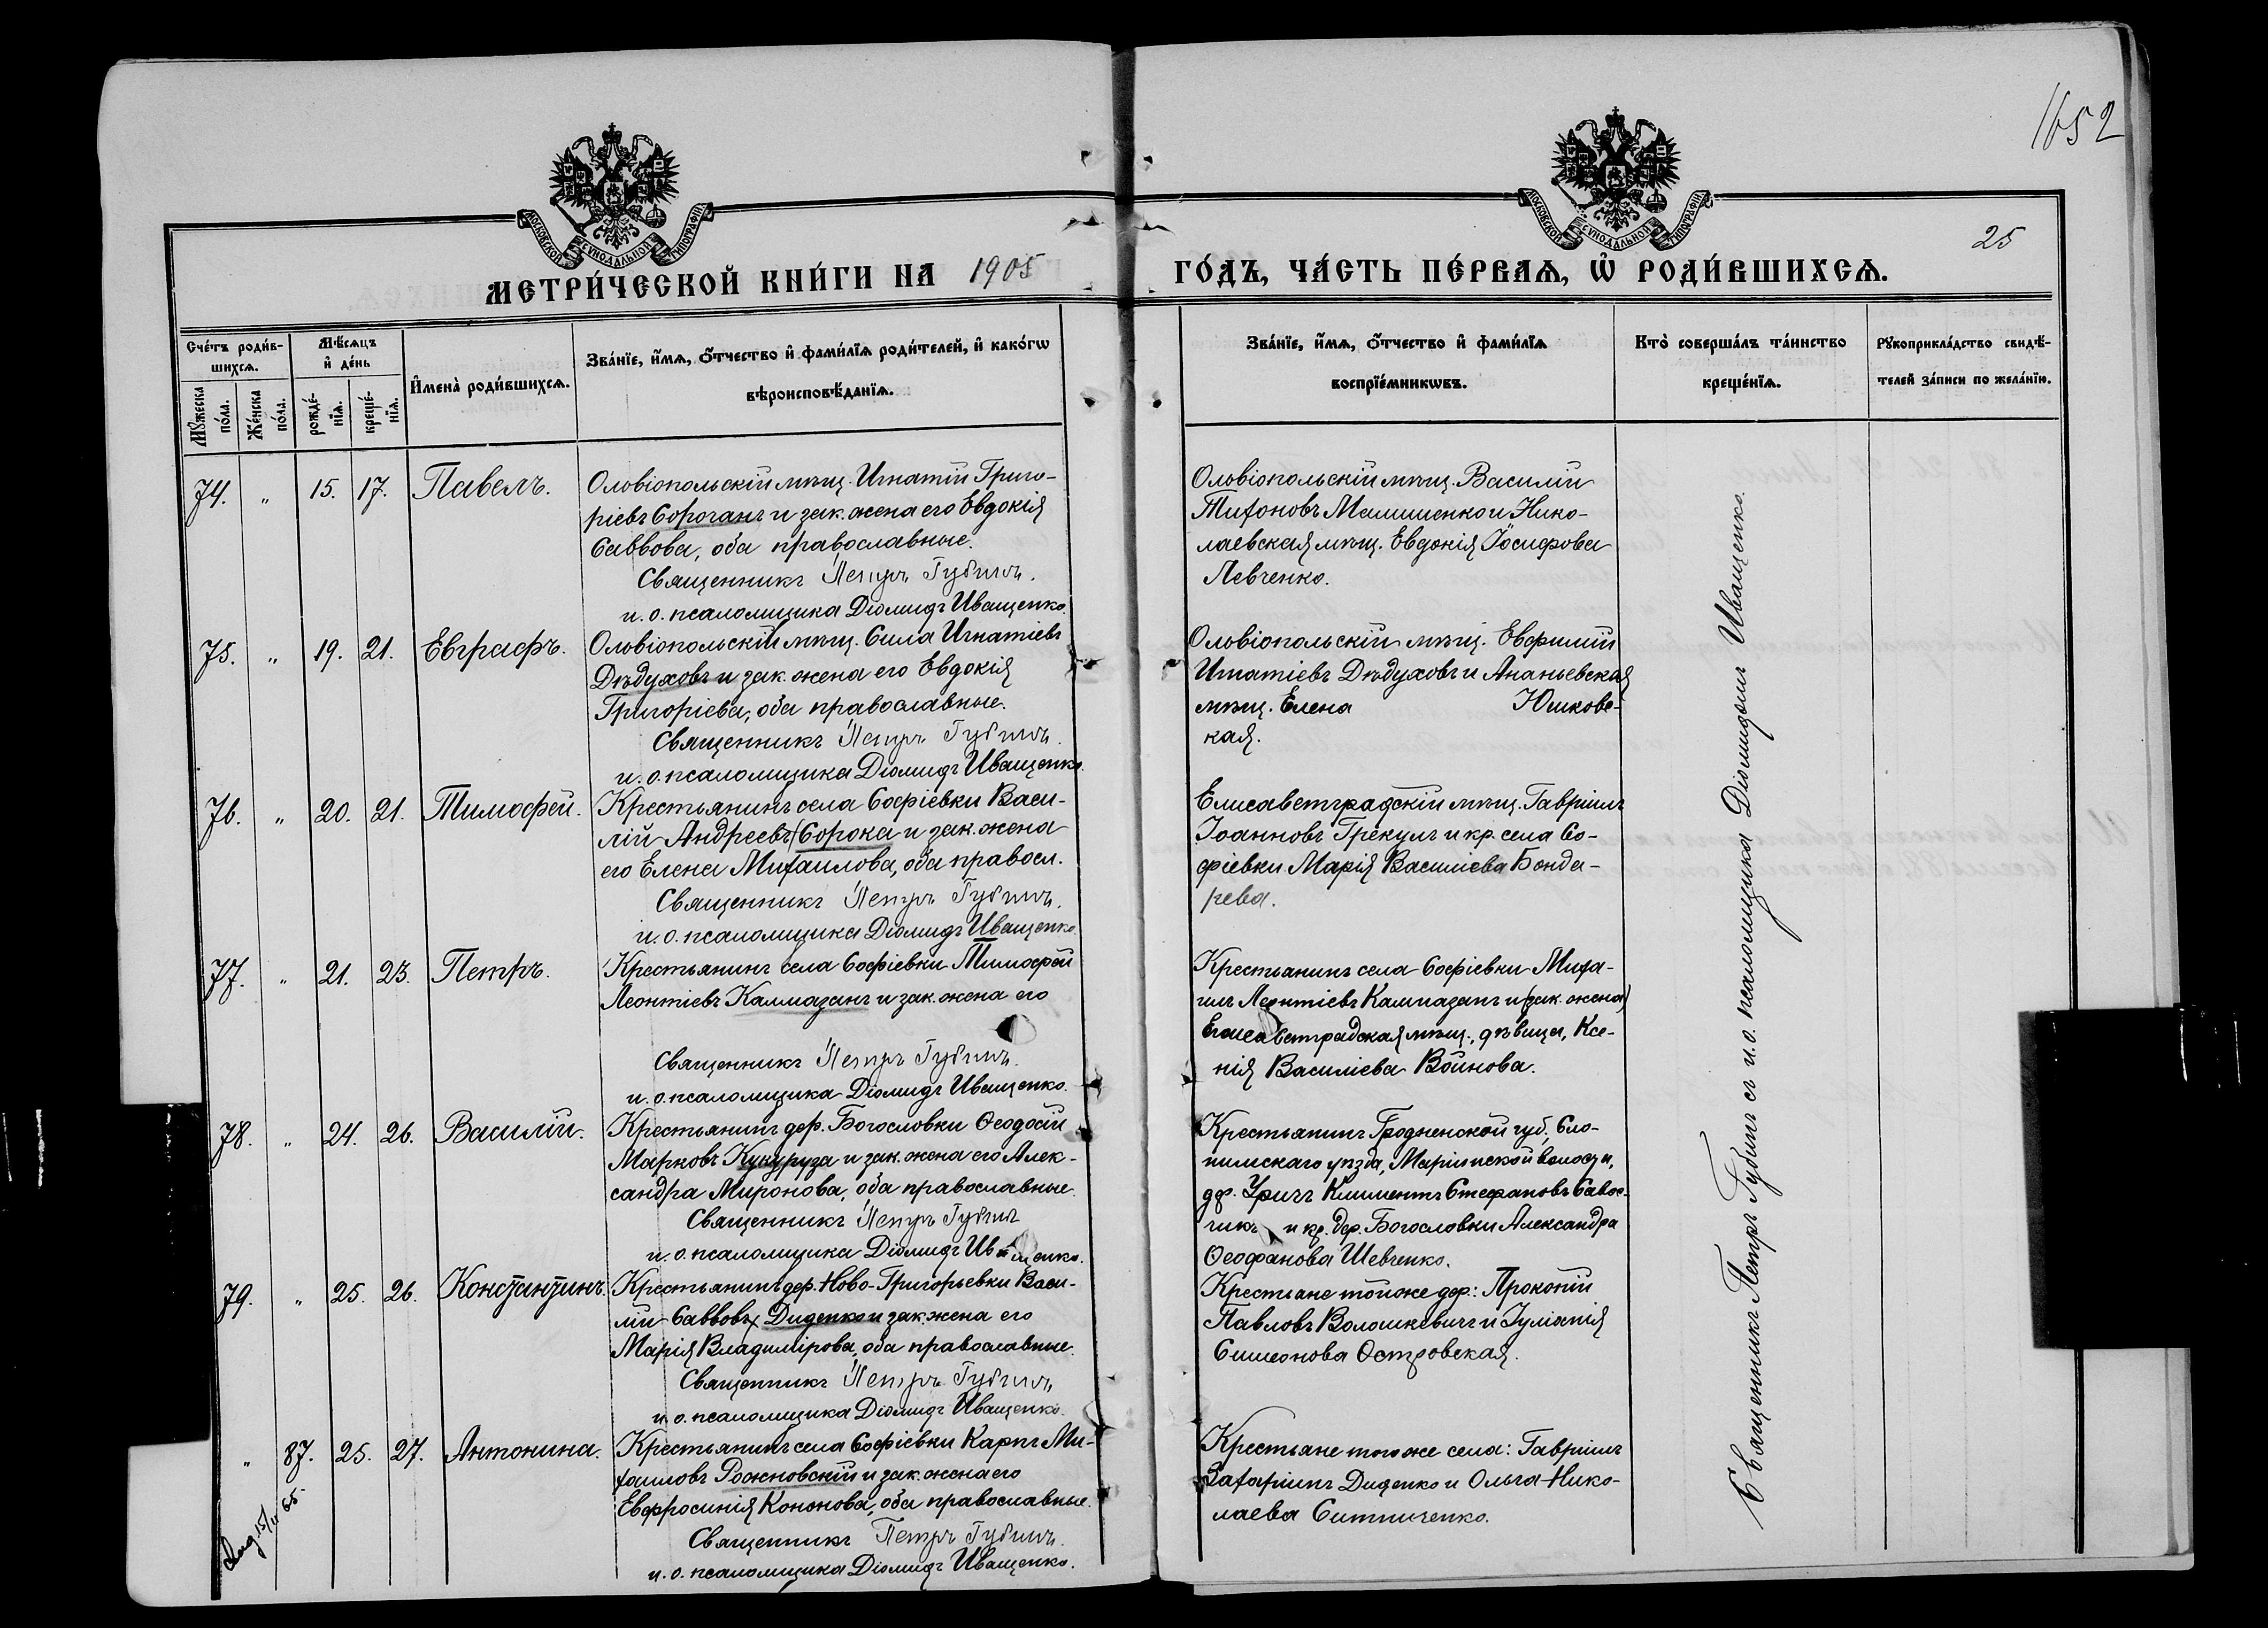 1652
МОСКОВСКОЙ СѴНОДАЛЬНОЙ ТИПОГРАФІИ
МОСКОВСКОЙ СѴНОДАЛЬНОЙ ТИПОГРАФІИ
25
МЕТРИ́ЧЕСКОЙ КНИ́ГИ НА 1905 ГО́ДЪ, ЧА́СТЬ ПЕ́РВАѦ, Ѽ РОДИ́ВШИХСѦ.
Сче́тъ роди́в-
шихсѧ.
Мꙋ́жеска по́ла.
Же́нска по́ла.
Мѣ́сѧцъ и҆ де́нь
рожде́-нїѧ.
креще́-нїѧ.
И҆мена̀ роди́вшихсѧ.
Зва́нїе, и҆́мѧ, ѻ҆́тчество и҆ фами́лїѧ роди́телей, и҆ како́гѡ
вѣроисповѣ́данїѧ.
Зва́нїе, и҆́мѧ, ѻ҆́тчество и҆ фами́лїѧ
воспрїе́мникѡвъ.
Кто̀ соверша́лъ та́инство
креще́нїѧ.
Рꙋкоприкла́дство свидѣ́-
телей за́писи по жела́нїю.
74. " 15. 17. Павелъ.
Ольвіопольскій мѣщ. Игнатій Григо-
ріевъ Сорочанъ и зак. жена его Евдокія
Саввова, оба православные.
Священникъ Петръ Губинъ.
и. о. псаломщика Діомидъ Иващенко.
Ольвіопольскій мѣщ. Василій
Тихоновъ Малишенко и Нико-
лаевская мѣщ. Евдокія Іосифова
Левченко.
75. " 19. 21. Евграфъ.
Ольвіопольскій мѣщ. Сила Игнатіевъ
Дѣдуховъ и зак. жена его Евдокія
Григоріева, оба православные.
Священникъ Петръ Губинъ.
и. о. псаломщика Діомидъ Иващенко.
Ольвіопольскій мѣщ. Евфимій
Игнатіевъ Дѣдуховъ и Ананьевская
мѣщ. Елена Юшковс-
кая.
76. " 20. 21. Тимофей.
Крестьянинъ села Софіевки Васи-
лій Андреевъ Сорока и зак. жена
его Елена Михаилова, оба правосл.
Священникъ Петръ Губинъ.
и. о. псаломщика Діомидъ Иващенко.
Елисаветградскій мѣщ. Гавріилъ
Іоанновъ Грекулъ и кр. села Со-
фіевки Марія Василіева Бонда-
рева.
77. " 21. 23. Петръ.
Крестьянинъ села Софіевки Тимофей
Леонтіевъ Калмазанъ и зак. жена его
Священникъ Петръ Губинъ.
и. о. псаломщика Діомидъ Иващенко.
Крестьянинъ села Софіевки Миха-
илъ Леонтіевъ Калмазанъ и (зак. жена)
Елисаветградская мѣщ., дѣвица, Ксе-
нія Василіева Войнова.
78. " 24. 26. Василій.
Крестьянинъ дер. Богословки Ѳеодосій
Марковъ Кукуруза и зак. жена его Алек-
сандра Миронова, оба православные.
Священникъ Петръ Губинъ
и. о. псаломщика Діомидъ Иващенко.
Крестьянинъ Гродненской губ., Сло-
нимскаго уѣзда, Маріинской волости,
дер. Климентъ Стефановъ
и кр. дер. Богословки Александра
Ѳеофанова Шевченко.
79. " 25. 26. Константинъ.
Крестьянинъ дер. Ново-Григорьевки Васи-
лій Саввовъ Диденко и зак. жена его
Марія Владимірова, оба православные.
Священникъ Петръ Губинъ
и. о. псаломщика Діомидъ Иващенко.
Крестьяне той же дер.: Прокопій
Павловъ Волошкевичъ и Іуліанія
Симеонова Островская.
" 87. 25. 27. Антонина.
Крестьянинъ села Софіевки Карпъ Ми-
хаиловъ Рожновскій и зак. жена его
Евфросинія Кононова, оба православные.
Священникъ Петръ Губинъ.
и. о. псаломщика Діомидъ Иващенко.
Крестьяне того же села: Гавріилъ
Захаріинъ Диденко и Ольга Нико-
лаева Ситниченко.
Священникъ Петръ Губинъ съ и. о. псаломщика Діомидомъ Иващенко.